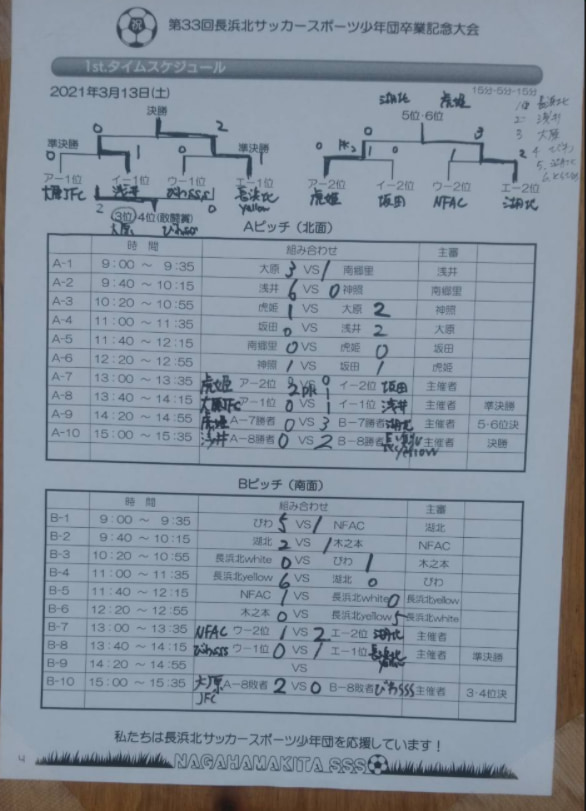 祝
第33回長浜北サッカースポーツ少年団卒業記念大会
1st.タイムスケジュール
2021年3月13日(土)
15分-5分-15分
湖北 虎姫
長浜北
2 浅井
3 大原
決勝
5位・6位
0 2
0 3
準決勝 準決勝
0 1 0 1
PK2 1 0 1 2
ア−1位 イ−1位 ウ−1位 エ−1位
ア−2位 イ−2位 ウ−2位 エ−2位
大原JFC 浅井 びわsss 長浜北 yellow
虎姫 坂田 NFAC 湖北
2 0
3位 4位(敢闘賞)
大原 びわsss
Aピッチ(北面)
時 間 組み合わせ 主審
A-1 9:00 ～ 9:35 大原 3 VS 1 南郷里 浅井
A-2 9:40 ～ 10:15 浅井 6 VS 0 神照 南郷里
A-3 10:20 ～ 10:55 虎姫 1 VS 大原 2 神照
A-4 11:00 ～ 11:35 坂田 0 VS 浅井 2 大原
A-5 11:40 ～ 12:15 南郷里 0 VS 虎姫 0 坂田
A-6 12:20 ～ 12:55 神照 1 VS 坂田 1 虎姫
A-7 13:00 ～ 13:35 虎姫 ア−2位 0 VS 0 イ−2位 坂田 主催者
2 PK 1
A-8 13:40 ～ 14:15 大原JFC ア−1位 0 VS 1 イ−1位 浅井 主催者 準決勝
A-9 14:20 ～ 14:55 虎姫 A−7勝者 0 VS 3 B−7勝者 湖北 主催者 5-6位決
A-10 15:00 ～ 15:35 浅井 A−8勝者 0 VS 2 B−8勝者 長浜北 yellow 主催者 決勝
Bピッチ(南面)
時 間 組み合わせ 主審
B-1 9:00 ～ 9:35 びわ 5 VS 1 NFAC 湖北
B-2 9:40 ～ 10:15 湖北 2 VS 1 木之本 NFAC
B-3 10:20 ～ 10:55 長浜北white 0 VS びわ 1 木之本
B-4 11:00 ～ 11:35 長浜北yellow 6 VS 湖北 0 びわ
B-5 11:40 ～ 12:15 NFAC 1 VS 長浜北white 0 長浜北yellow
B-6 12:20 ～ 12:55 木之本 0 VS 長浜北yellow 5 長浜北white
B-7 13:00 ～ 13:35 NFAC ウ−2位 1 VS 2 エ−2位 湖北 主催者
B-8 13:40 ～ 14:15 びわsss ウ−1位 0 VS 1 エ−1位 長浜北 yellow 主催者 準決勝
B-9 14:20 ～ 14:55 VS
B-10 15:00 ～ 15:35 大原JFC A−8敗者 2 VS 0 B−8敗者 びわsss 主催者 3-4位決
私たちは長浜北サッカースポーツ少年団を応援しています！
NAGAHAMAKITA SSS
4